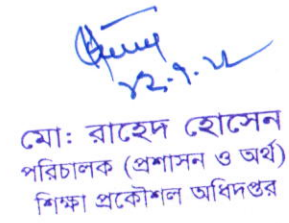 মো: রাহেদ হোসেন
পরিচালক (প্রশাসন ও অর্থ)
শিক্ষা প্রকৌশল অধিদপ্তর